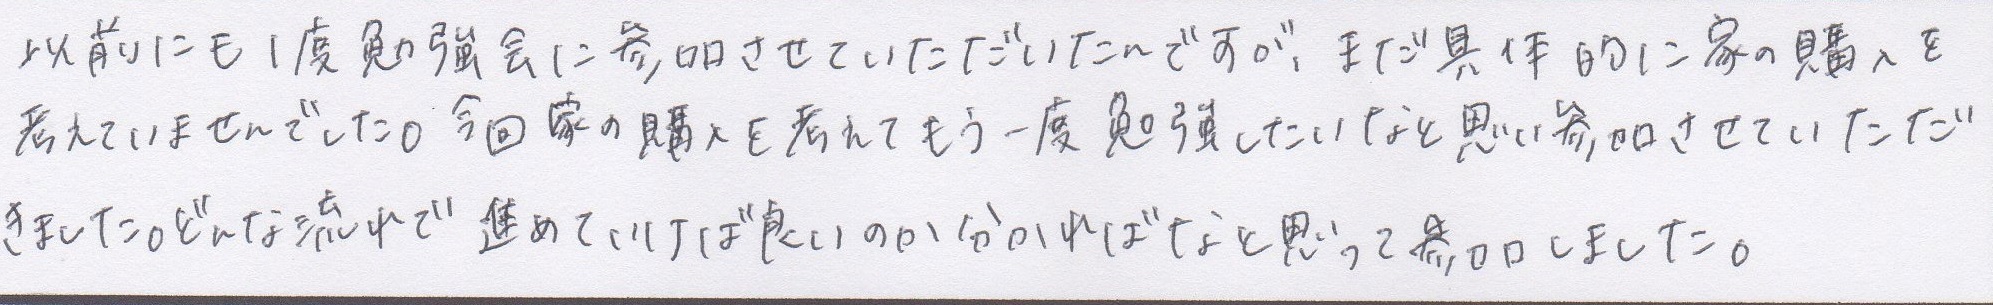 以前にも1度勉強会に参加させていただいたんですが、まだ具体的に家の購入を
考えていませんでした。今回家の購入を考えてもう一度勉強したいなと思い参加させていただ
きました。どんな流れで進めていけば良いのか分かればなと思って参加しました。